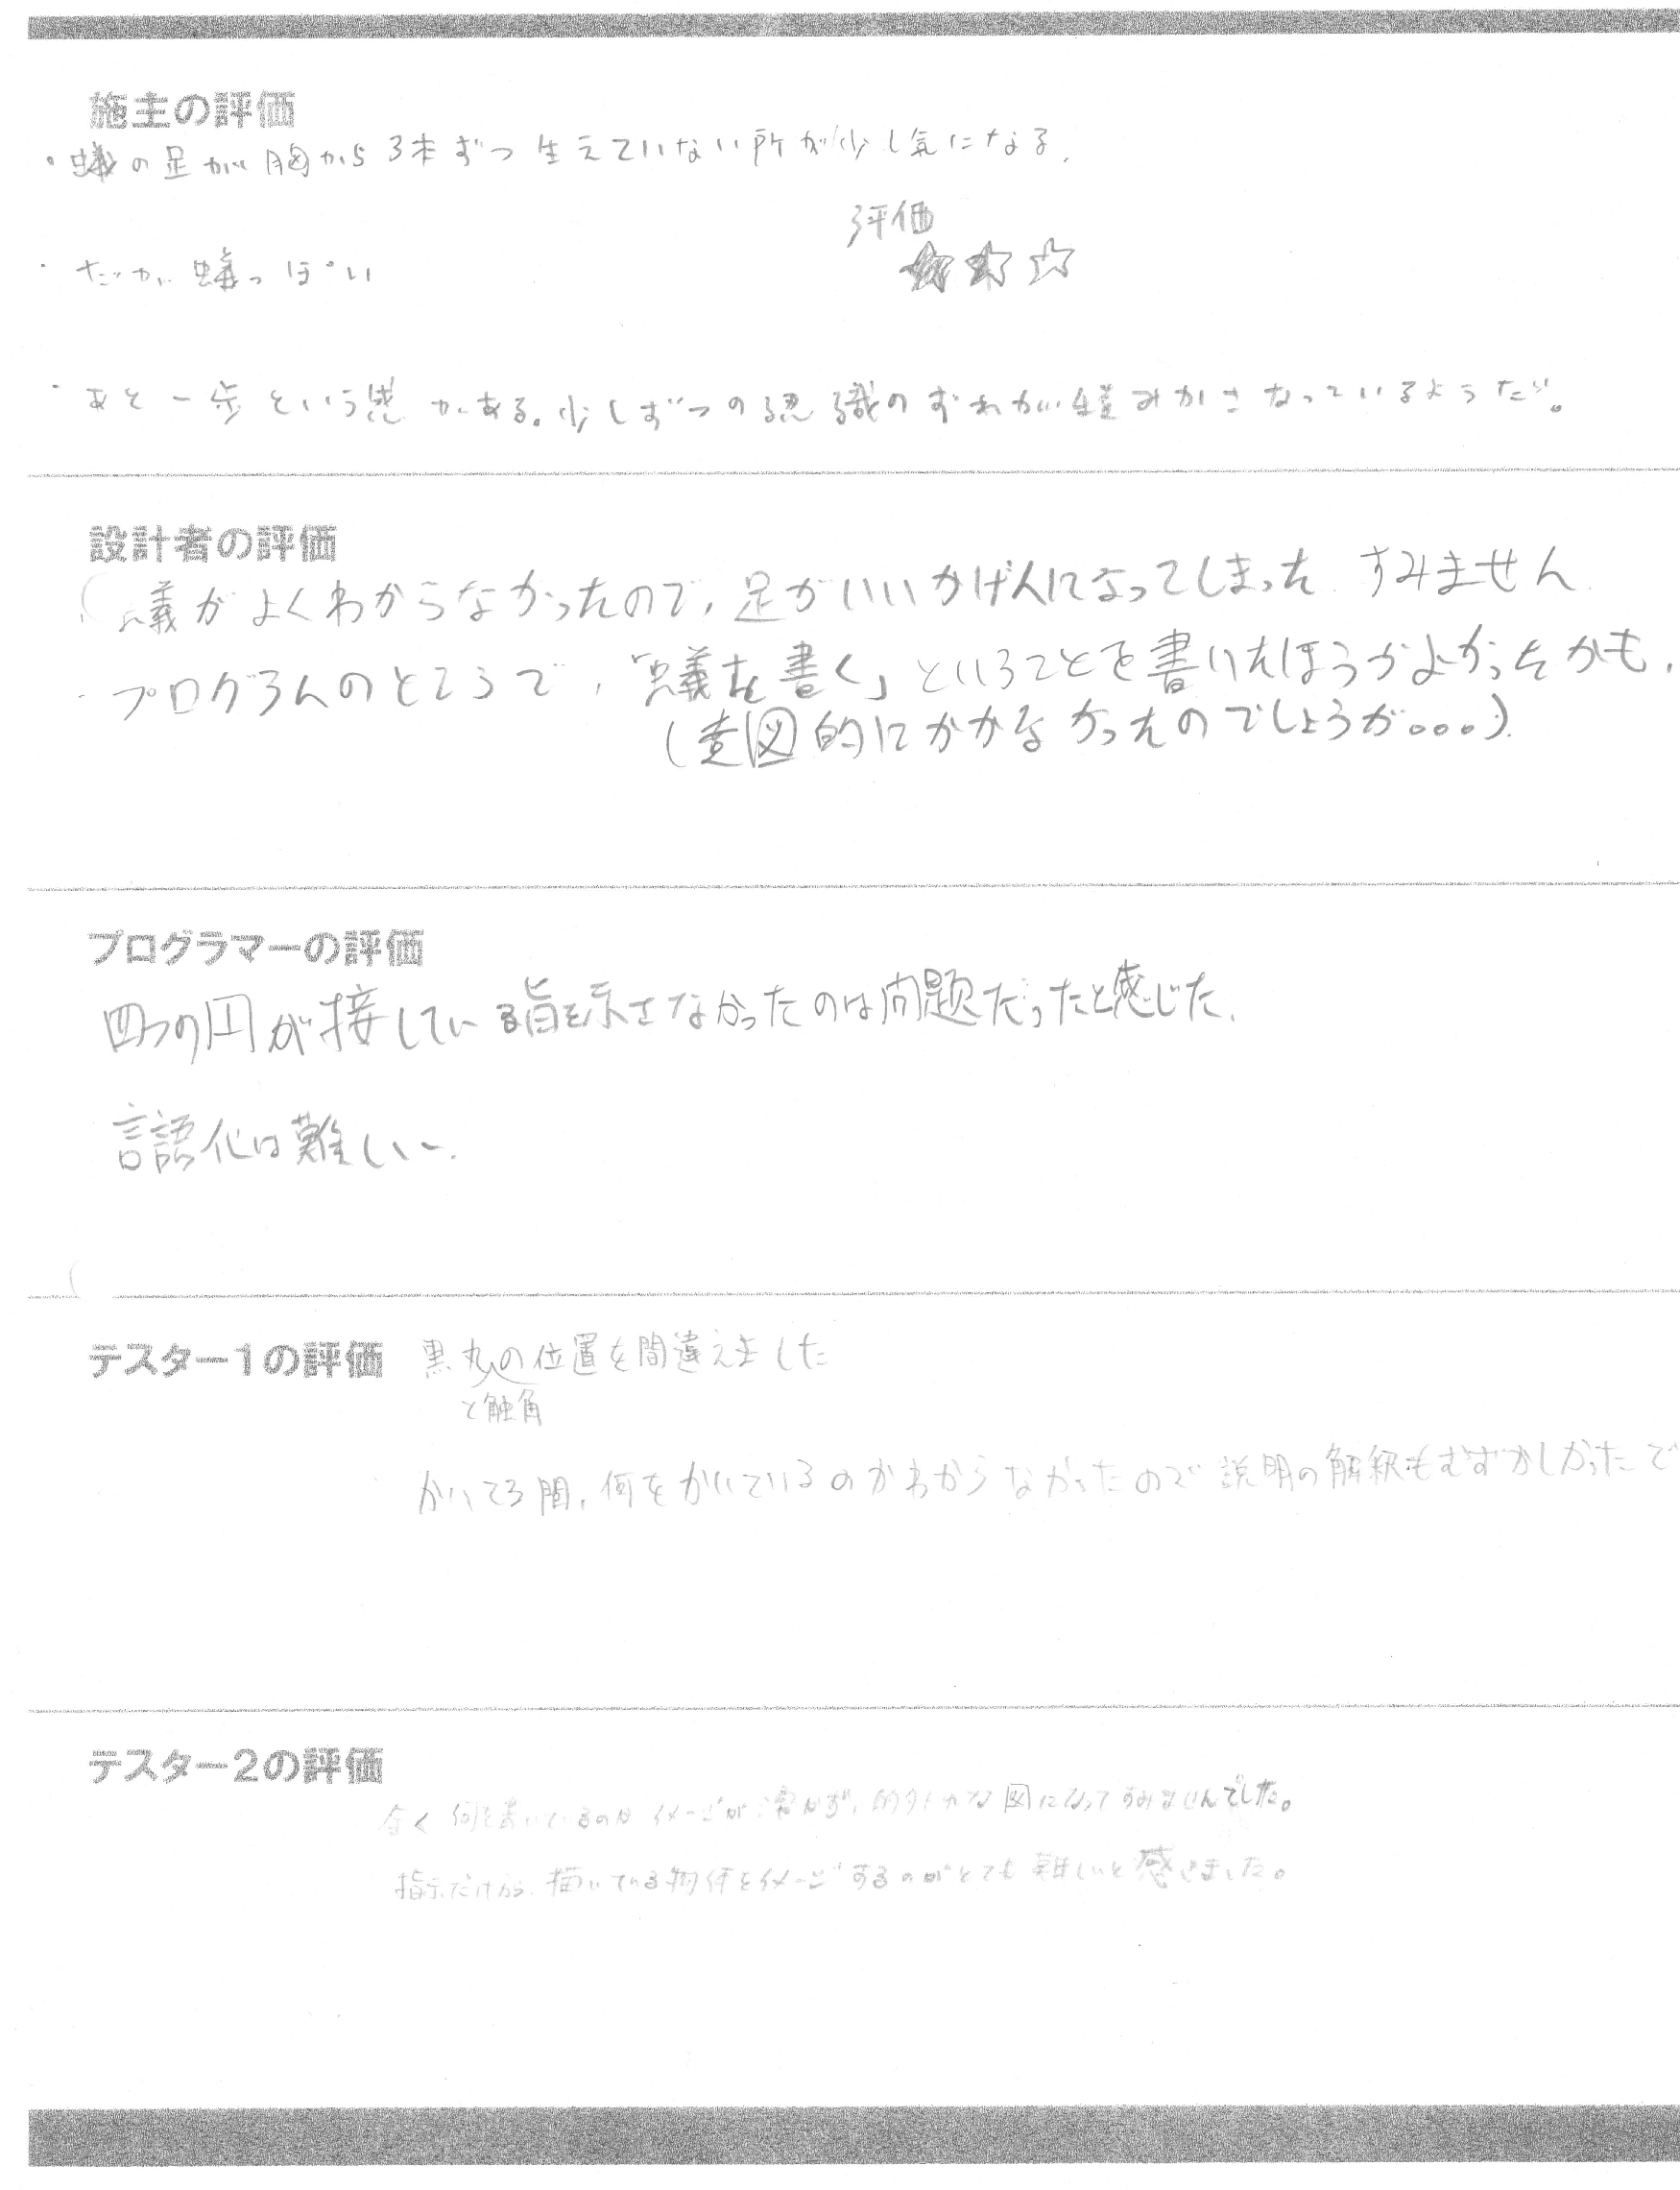 施主の評価
・蟻の足が胸から3本ずつ生えていない所が少し気になる.
評価
★★☆
・だが蟻っぽい
・あと一歩という感がある。少しずつの認識のずれが積みかさなっているようだ。
設計者の評価
・蟻がよくわからなかったので,足がいいかげんになってしまった.すみません.
・プログラムのところで,「蟻を書く」ということを書いたほうがよかったかも.
(意図的にかかなかったのでしょうが。。。).
プログラマーの評価
四つの円が接している旨を示さなかったのは問題だったと感じた.
言語化は難しい〜.
テスター1の評価 黒丸の位置を間違えました
と触角
かいてる間,何をかいているのかわからなかったので説明の解釈もむずかしかったで
テスター2の評価
全く何を書いているのかイメージが湧かず,的外れな図になってすみませんでした。
指示だけから,描いている物体をイメージするのがとても難しいと感じました。